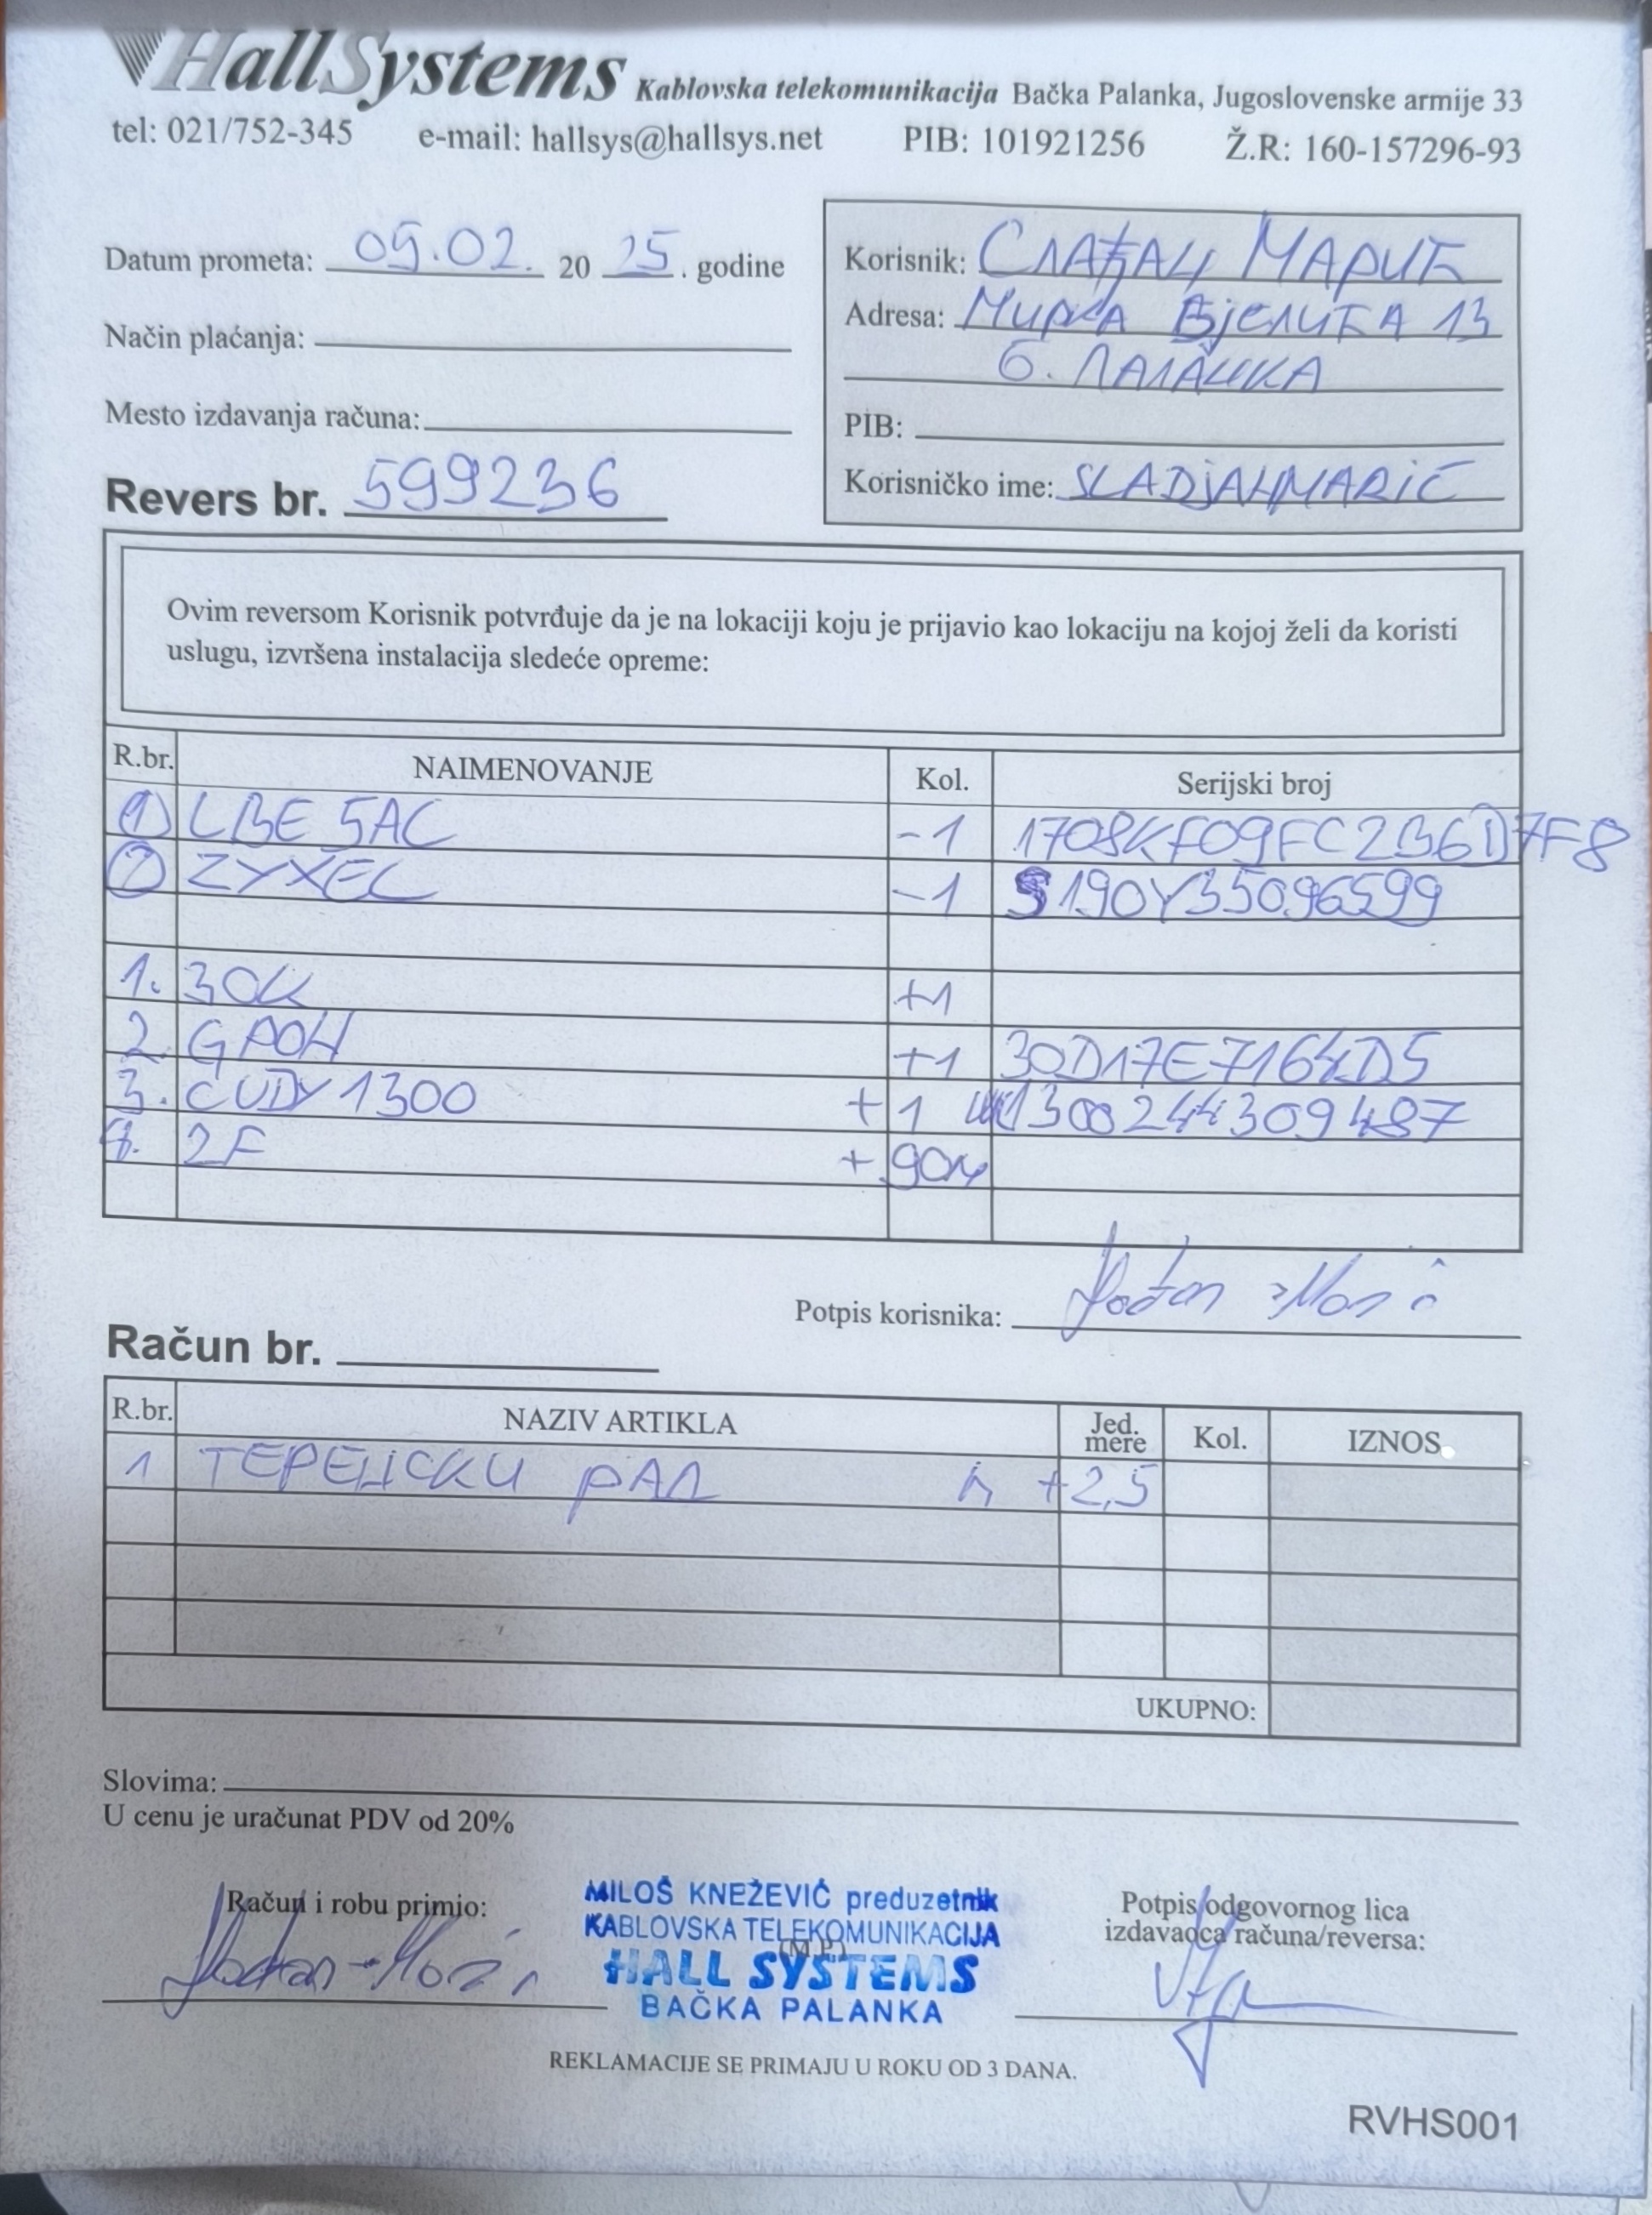 HallSystems Kablovska telekomunikacija Bačka Palanka, Jugoslovenske armije 33
tel: 021/752-345 e-mail: hallsys@hallsys.net PIB: 101921256 Ž.R: 160-157296-93
Datum prometa: 05.02. 20 25. godine
Način plaćanja:
Mesto izdavanja računa:
Revers br. 599236
Korisnik: СЛАЂАН МАРИЋ
Adresa: МИРКА БЈЕЛИЋА 13
Б. ПАЛАНКА
PIB:
Korisničko ime: SLADJANMARIC
Ovim reversom Korisnik potvrđuje da je na lokaciji koju je prijavio kao lokaciju na kojoj želi da koristi
uslugu, izvršena instalacija sledeće opreme:
R.br. NAIMENOVANJE Kol. Serijski broj
1 LBE 5AC -1 1708KF09FC2B6D7F8
2 ZYXEL -1 S190Y35096599
1. ЗОК +1
2. GPOH +1 30D17E7164D5
3. CUDY 1300 +1 1300244309487
4. 2F +90м
Potpis korisnika:
Račun br.
R.br. NAZIV ARTIKLA Jed. mere Kol. IZNOS
1 ТЕРЕНСКИ РАД h +2,5
UKUPNO:
Slovima:
U cenu je uračunat PDV od 20%
Račun i robu primio:
MILOŠ KNEŽEVIĆ preduzetnik
KABLOVSKA TELEKOMUNIKACIJA
(M.P.)
HALL SYSTEMS
BAČKA PALANKA
Potpis odgovornog lica
izdavaoca računa/reversa:
REKLAMACIJE SE PRIMAJU U ROKU OD 3 DANA.
RVHS001